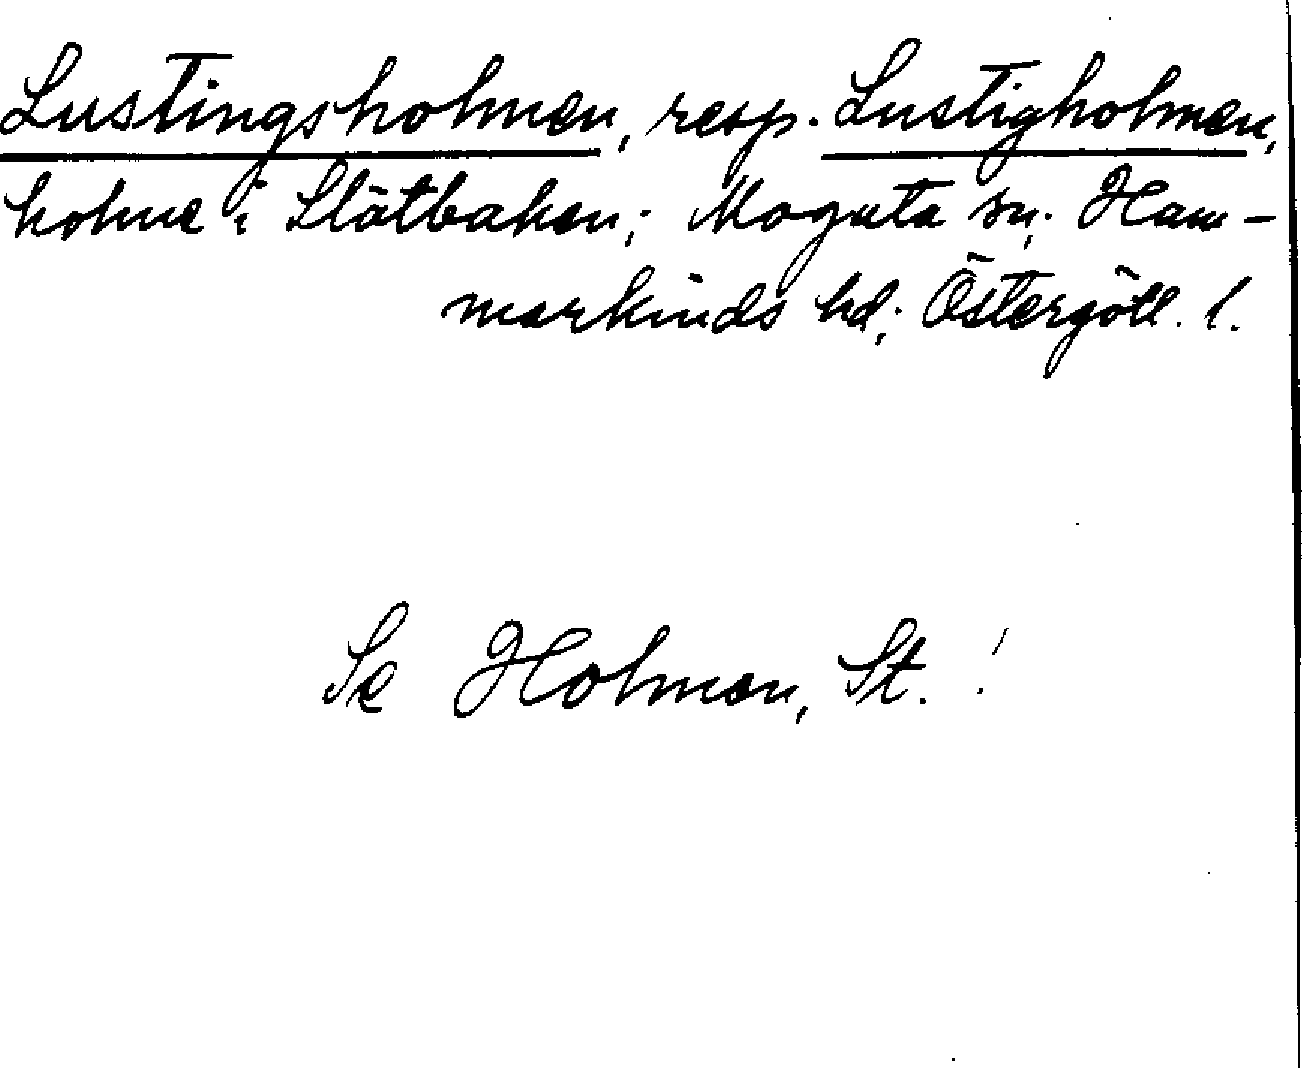 Lustingsholmen, resp. Lustigholmen,
holme i Slätbaken; Mogata sn; Ham-
markinds hd; Östergötl. l.
Se Holmen, St. !